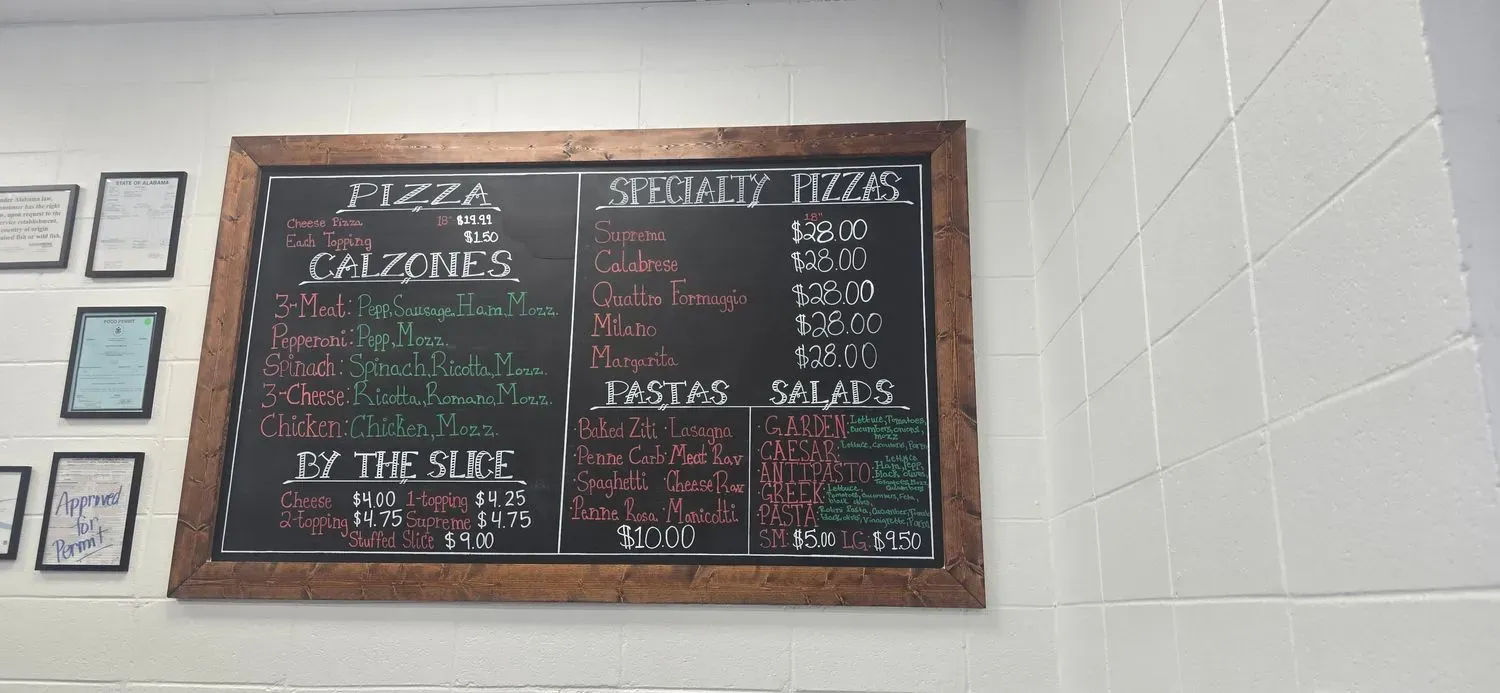 nder Alabama law,
nsumer has the right
w, upon request to the
ervice establishment,
country of origin
aised fish or wild fish.
STATE OF ALABAMA
FOOD PERMIT
Approved
for
Permit
PIZZA
18"
Cheese Pizza $19.99
Each Topping $1.50
CALZONES
3-Meat: Pepp, Sausage, Ham, Mozz.
Pepperoni: Pepp, Mozz.
Spinach: Spinach, Ricotta, Mozz.
3-Cheese: Ricotta, Romano, Mozz.
Chicken: Chicken, Mozz.
BY THE SLICE
Cheese $4.00 1-topping $4.25
2-topping $4.75 Supreme $4.75
Stuffed Slice $9.00
SPECIALTY PIZZAS
18"
Suprema $28.00
Calabrese $28.00
Quattro Formaggio $28.00
Milano $28.00
Margarita $28.00
PASTAS
·Baked Ziti ·Lasagna
·Penne Carb ·Meat Rav
·Spaghetti ·Cheese Rav
·Penne Rosa ·Manicotti
$10.00
SALADS
·GARDEN: Lettuce, Tomatoes,
cucumbers, onions,
mozz
·CAESAR: Lettuce, Croutons, Parm
·ANTIPASTO: Lettuce,
Ham, Pepp,
black olives,
Tomatoes, Mozz,
Cucumbers
·GREEK: Lettuce,
Tomatoes, cucumbers, Feta,
black olives
·PASTA: Rotini Pasta, Cucumber,
black olives, Vinaigrette, Parm
SM: $5.00 LG: $9.50